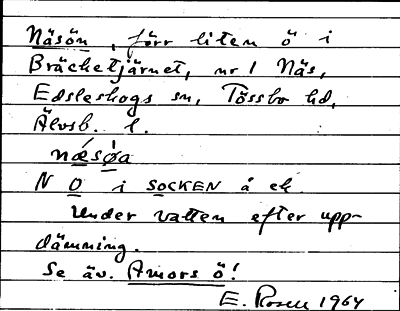 Näsön, förr liten ö i
Bräcketjärnet, nr 1 Näs,
Edsleskogs sn, Tössbo hd,
Älvsb. l.
næ̀søa
N O i SOCKEN å ek.
Under vatten efter upp-
dämning.
Se äv. Amors ö!
E. Rosell 1964